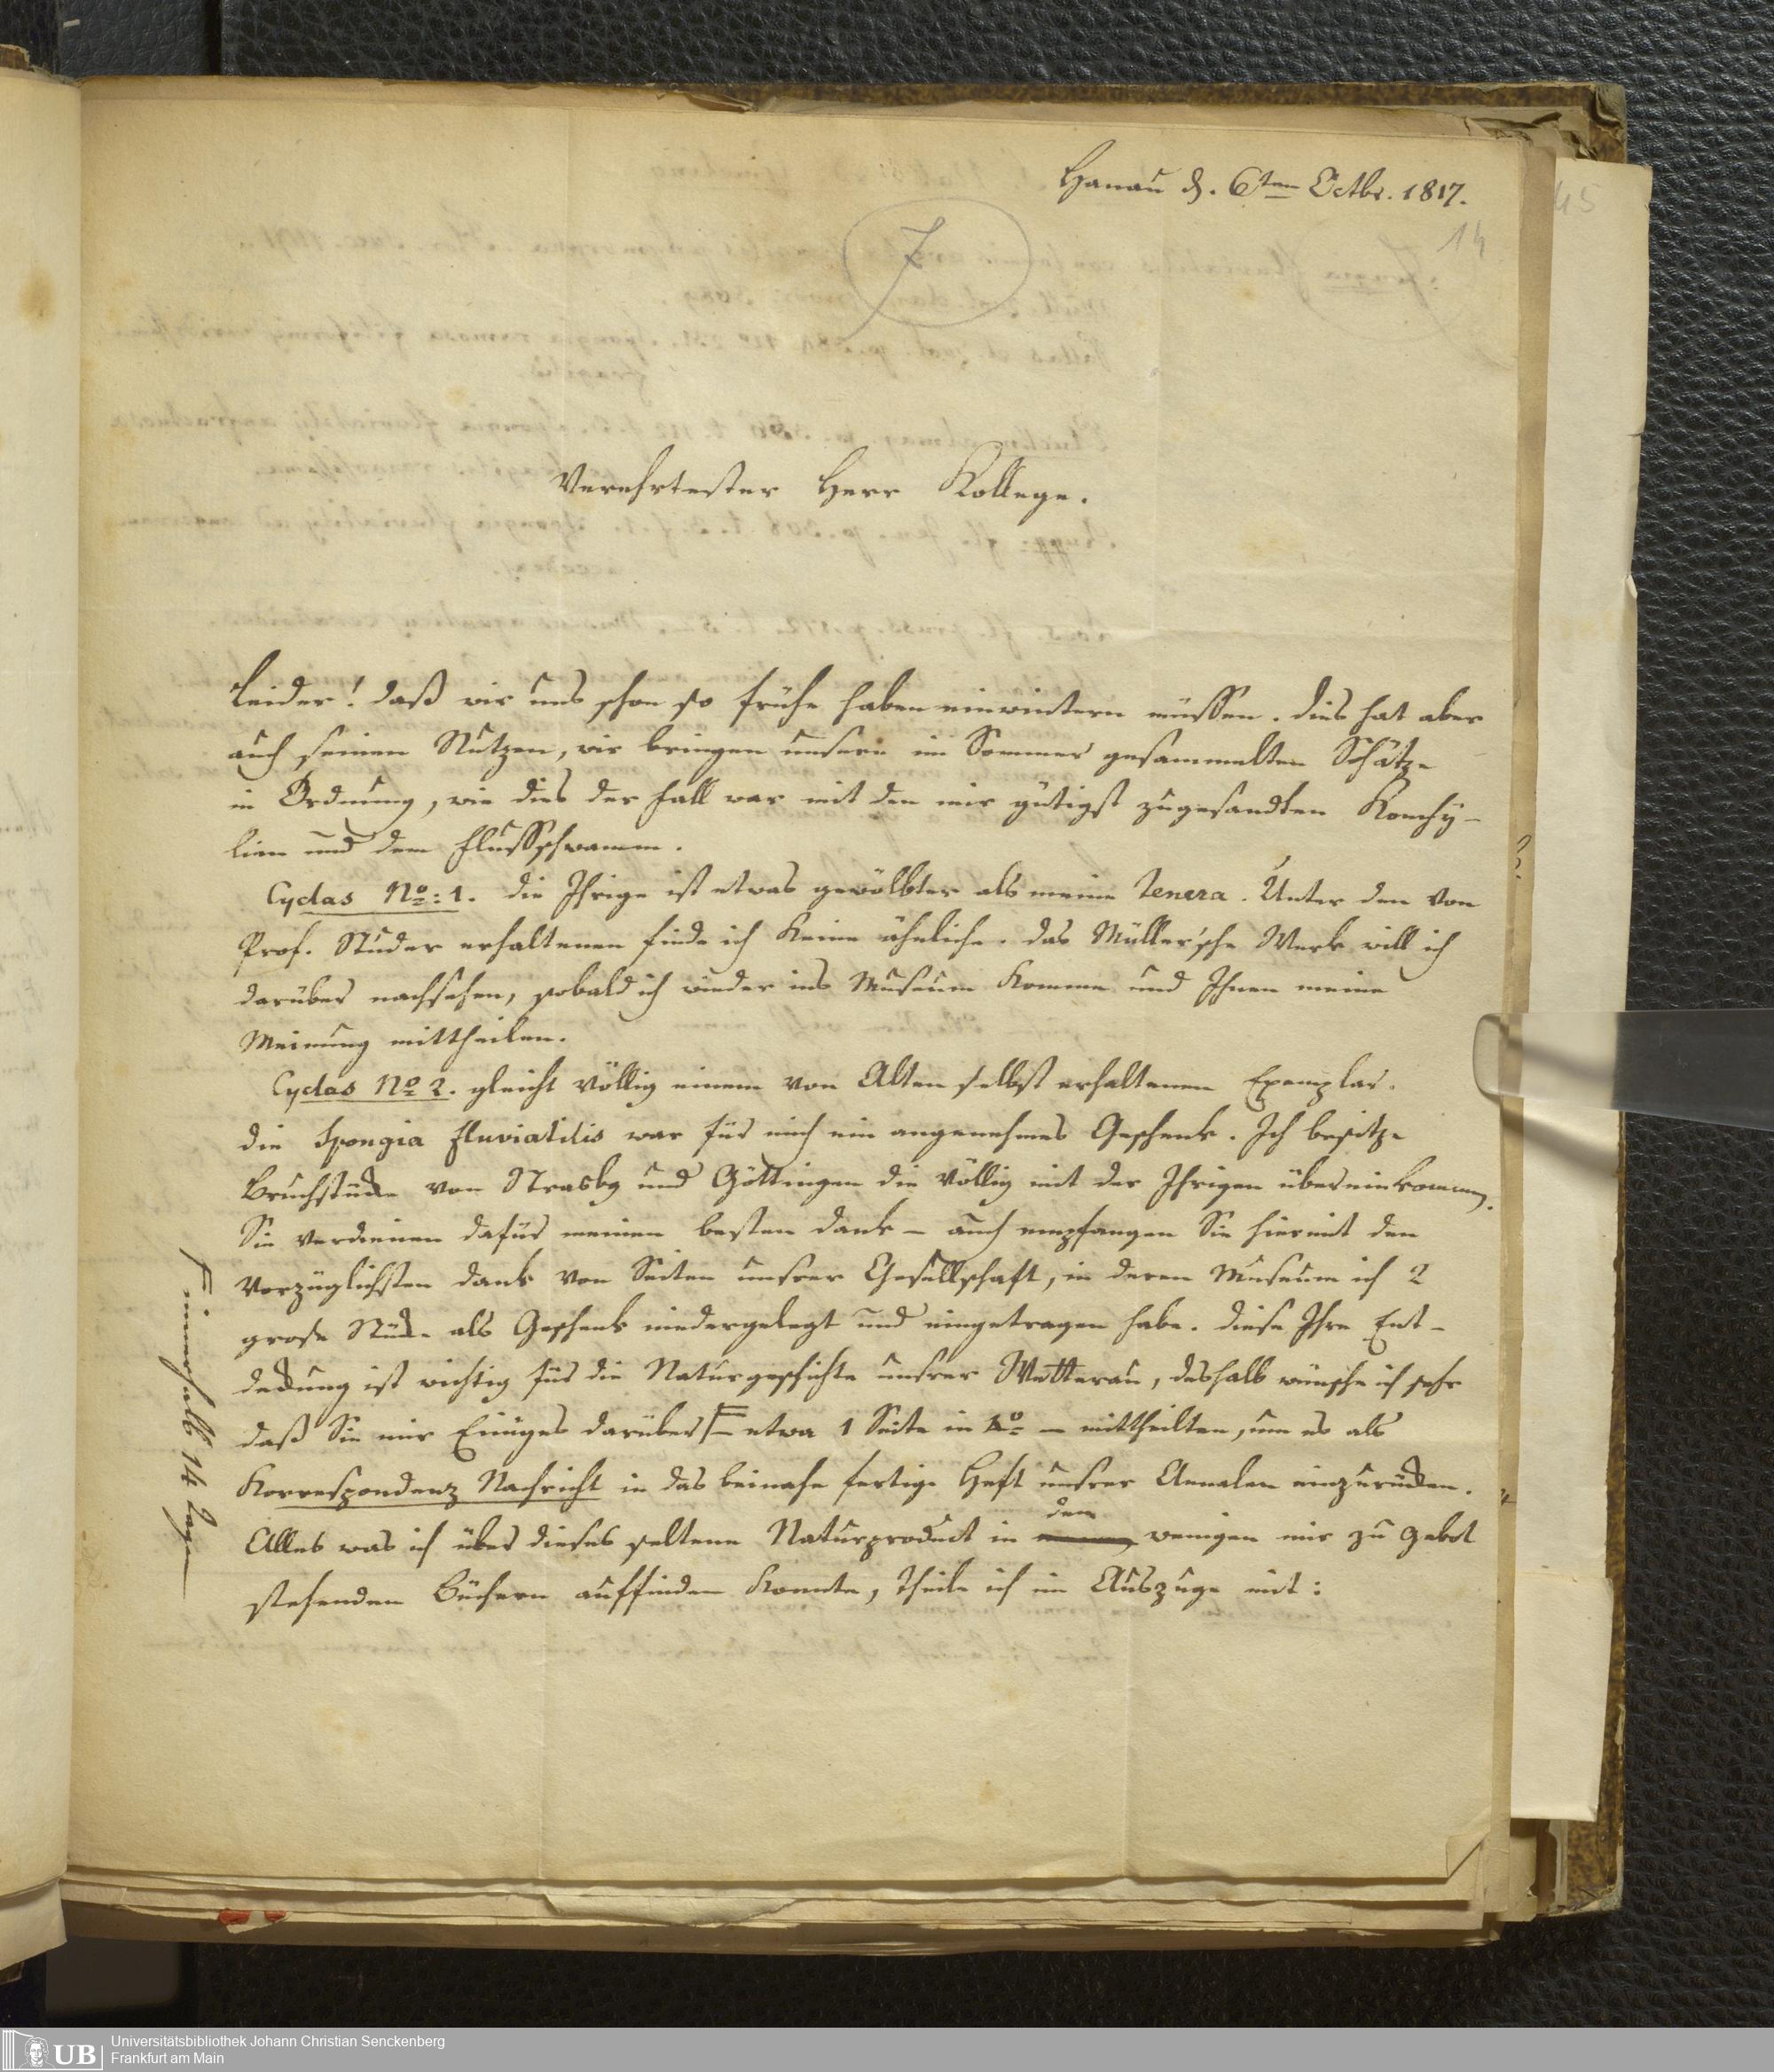 Hanau d. 6ten Octbr. 1817.
14
7
45
Verehrtester Herr Kollege.
Leider! daß wir uns schon so frühe haben einwintern müssen. dies hat aber
auch seinen Nutzen, wir bringen unsere im Sommer gesammelten Schätze
in Ordnung, wie dies der Fall war mit den mir gütigst zugesandten Konchÿ-
lien und dem Flussschwamm.
Cyclas No: 1. die Ihrige ist etwas gewölbter als meine Tenera. Unter den von
Prof. Studer erhaltenen finde ich keine ähnliche. das Müller'sche Werk will ich
darüber nachsehen, sobald ich wieder ins Museum komme und Ihnen meine
Meinung mittheilen.
Cyclas No 2. gleicht völlig einem von Alten selbst erhaltenen Exemplar.
die Spongia fluviatilis war für mich ein angenehmes Geschenk. Ich besitze
Bruchstücke von Strasbg und Göttingen die völlig mit der Ihrigen übereinkommen.
Sie verdienen dafür meinen besten Dank – auch empfangen Sie hiermit den
vorzüglichsten Dank von Seiten unsrer Gesellschaft, in deren Museum ich 2
große Stücke als Geschenk niedergelegt und eingetragen habe. diese Ihre Ent-
deckung ist wichtig für die Naturgeschichte unsrer Wetterau, deshalb wünsche ich sehr
daß Sie mir Einiges darüber – etwa 1 Seite in 4o – mittheilten, um es als
Korrespondenz Nachricht in das beinahe fertige Heft unsrer Annalen einzurücken.
Alles was ich über dieses seltene Naturproduct in den wenigen mir zu Gebot
stehenden Büchern auffinden konnte, theile ich im Auszuge mit:
innerhalb 14 Tagen
UB
Universitätsbibliothek Johann Christian Senckenberg
Frankfurt am Main